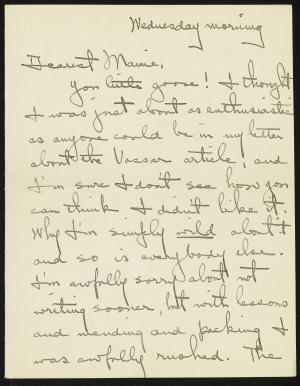 Wednesday morning
Dearest Mamie,
You little goose! I thought
I was just about as enthusiastic
as anyone could be in my letter
about the Vassar article, and
I'm sure I don't see how you
can think I didn't like it.
Why I'm simply wild about it
and so is everybody else.
I'm awfully sorry about not
writing sooner, but with lessons
and mending and packing I
was awfully rushed. The